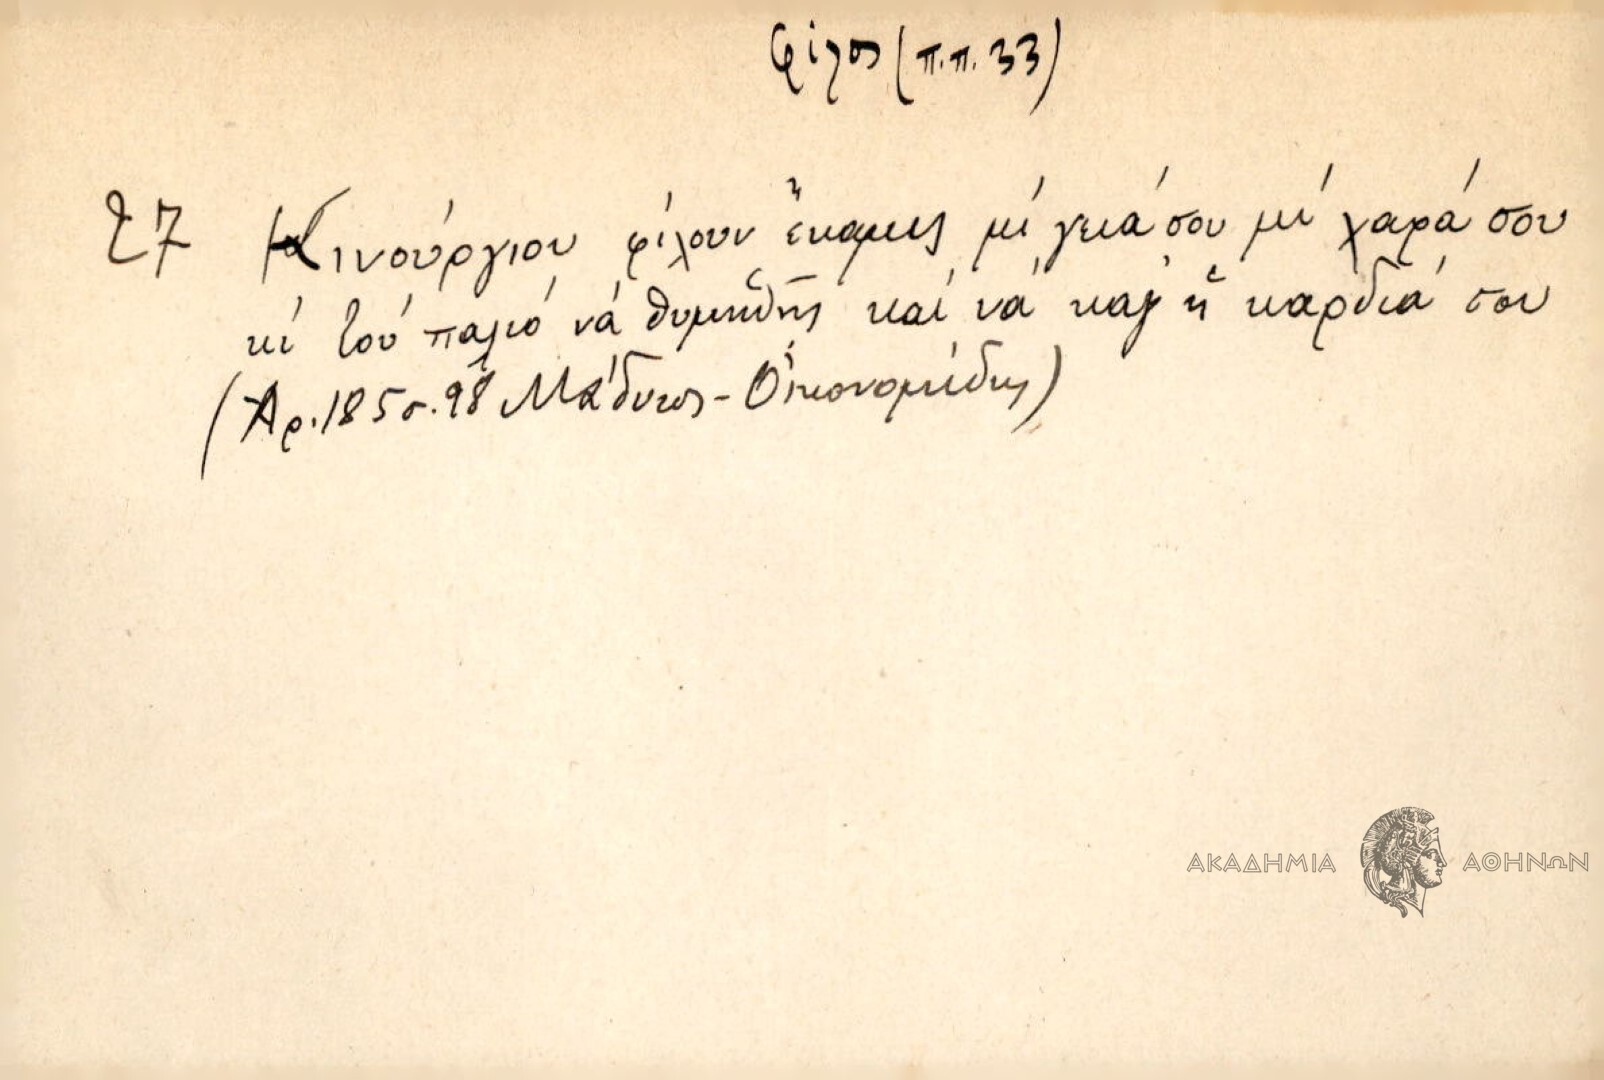 φίλος (π.π. 33)
27 Κινούργιου φίλουν ἔκαμις μί γειά σου μί χαρά σου
κί τού παλιό νά θυμηθῇς καί νά καῇ ἡ καρδιά σου
(Ἀρ. 185 σ. 98 Μάδυτος - Οἰκονομίδης)
ΑΚΑΔΗΜΙΑ ΑΘΗΝΩΝ